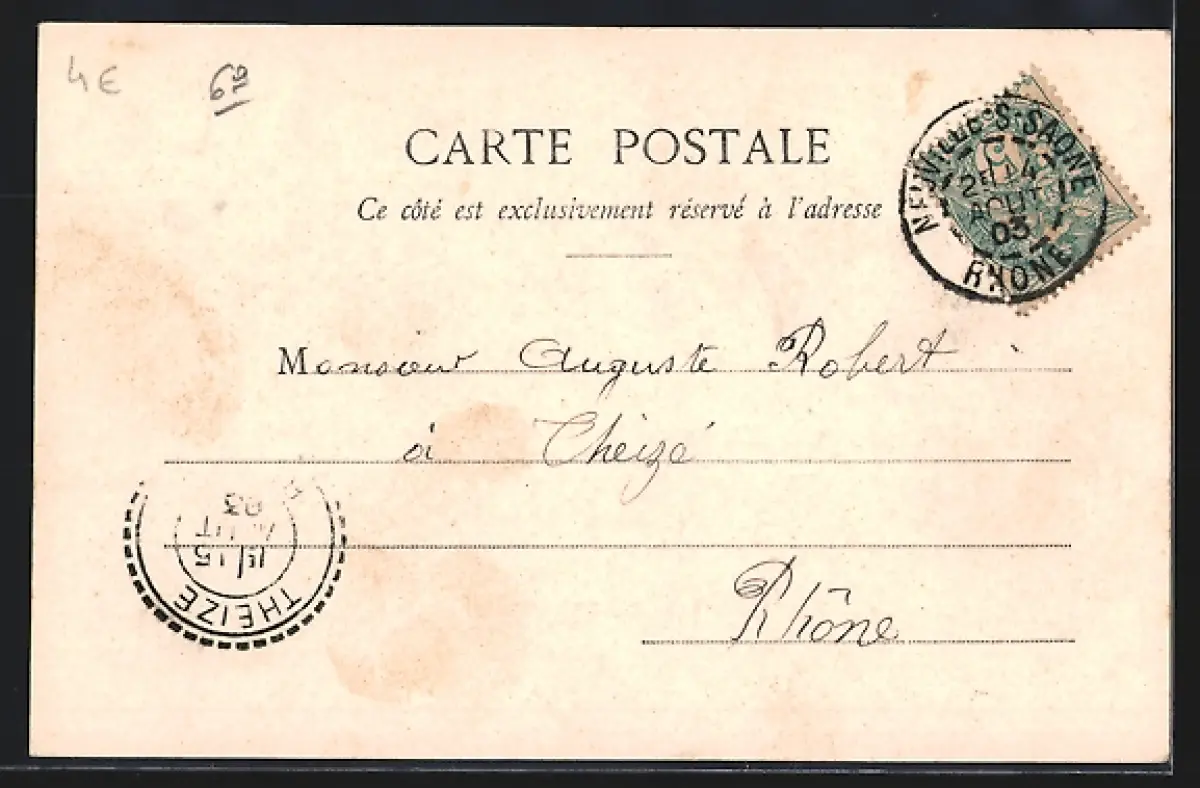 4€
CARTE POSTALE
Ce côté est exclusivement réservé à l'adresse
NEUVILLE-S-SAONE
2E 14
AOUT
03
RHONE
Monsieur Auguste Robert
à Theizé
Rhône
THEIZE
15
03